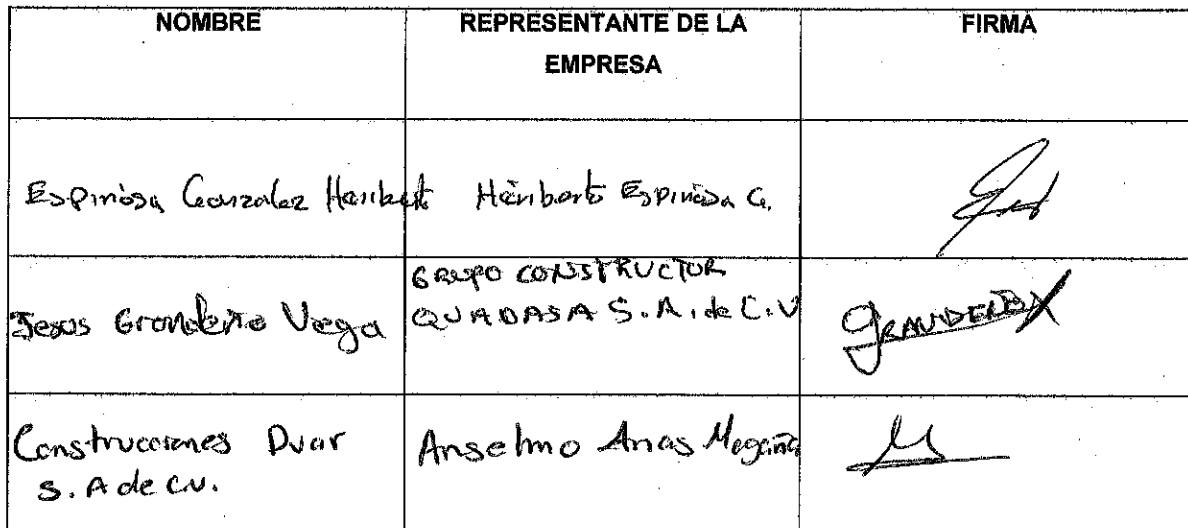 NOMBRE
REPRESENTANTE DE LA
EMPRESA
FIRMA
Espinosa Gonzalez Heriberto Heriberto Espinosa G.
Jesus Grandeño Vega
GRUPO CONSTRUCTOR
QUADASA S.A. de C.V
GRANDEÑO
Construcciones Dvar
S. A de C.V.
Anselmo Arias Magaña